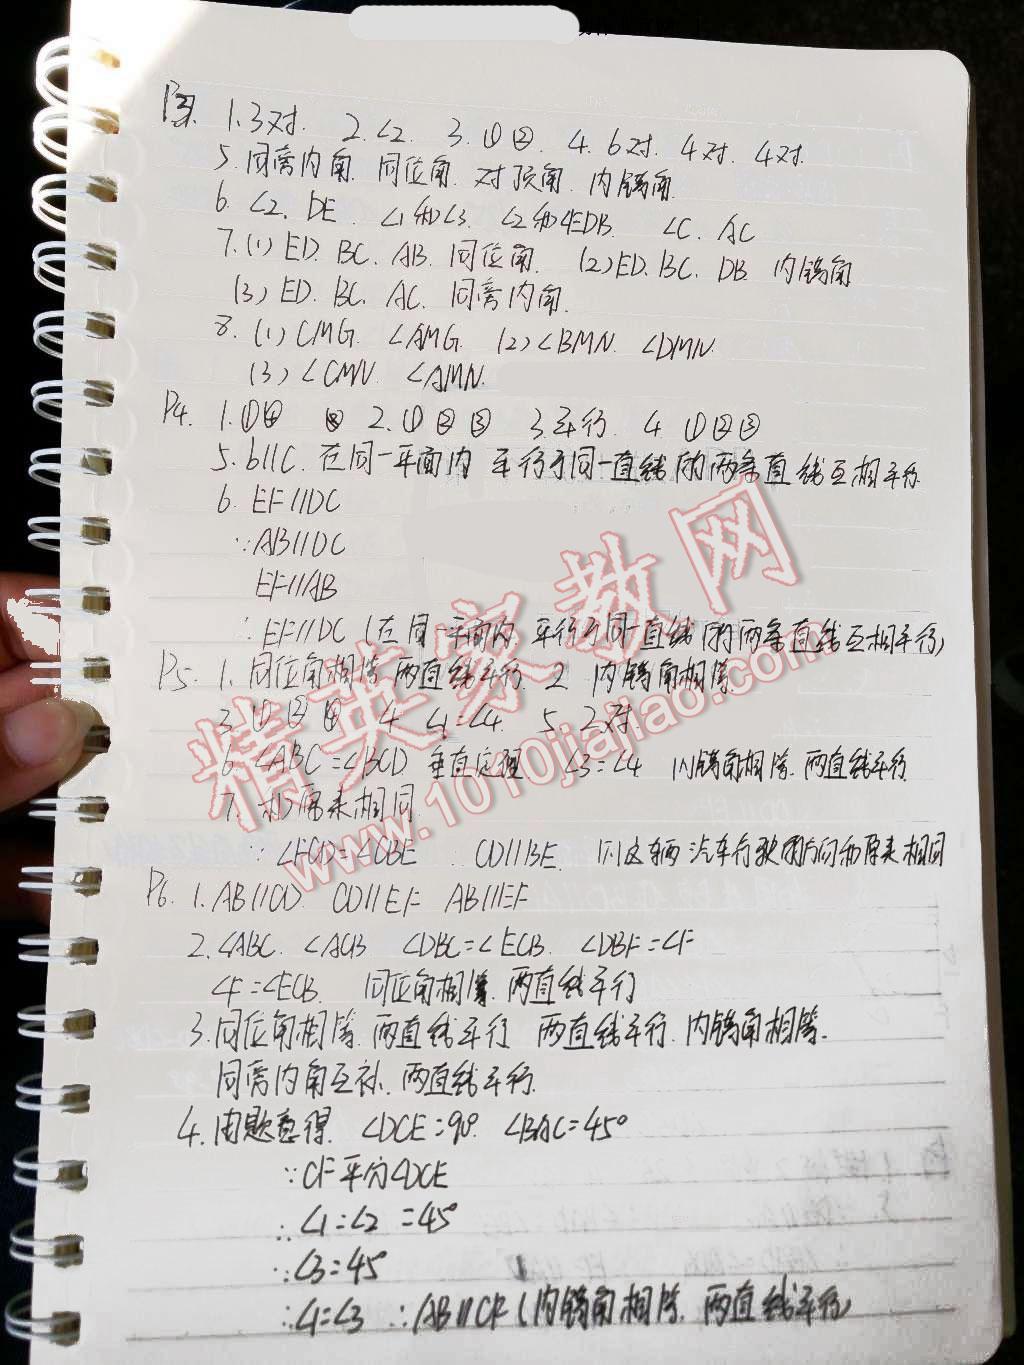 P3. 1. 3对. 2. ∠2. 3. ①②. 4. 6对. 4对. 4对.
5. 同旁内角. 同位角. 对顶角. 内错角.
6. ∠2. DE. ∠1和∠3. ∠2和∠EDB. ∠C. AC
7. (1) ED. BC. AB. 同位角. (2) ED. BC. DB 内错角
(3) ED. BC. AC. 同旁内角.
8. (1) CMG. ∠AMG. (2) ∠BMN. ∠DMN.
(3) ∠CMN. ∠AMN.
P4. 1. ①④ 2. ①②③ 3. 平行. 4. ①②③
5. b∥C. 在同一平面内 平行于同一直线的两条直线互相平行.
6. EF∥DC
∵AB∥DC
EF∥AB
∴EF∥DC (在同一平面内. 平行于同一直线的两条直线互相平行)
P5. 1. 同位角相等. 两直线平行. 2 内错角相等.
3. ①②④ 4. ∠1=∠4. 5. 2对.
6. ∠ABC=∠BCD. 垂直定理 ∠3=∠4 内错角相等. 两直线平行.
7. 和原来相同.
∵∠FCD=∠CBE ∴CD∥BE. 则这辆汽车行驶的方向和原来相同
P6. 1. AB∥CD. CD∥EF AB∥EF
2. ∠ABC. ∠ACB ∠DBC=∠ECB. ∠DBF=∠F
∠F=∠ECB. 同位角相等. 两直线平行
3. 同位角相等. 两直线平行 两直线平行. 内错角相等.
同旁内角互补. 两直线平行.
4. 由题意得. ∠DCE=90°. ∠BAC=45°
∵CF平分∠DCE
∴∠1=∠2=45°
∵∠3=45°
∴∠1=∠3 ∴AB∥CF (内错角相等. 两直线平行)
精英家教网
www.1010jiajiao.com